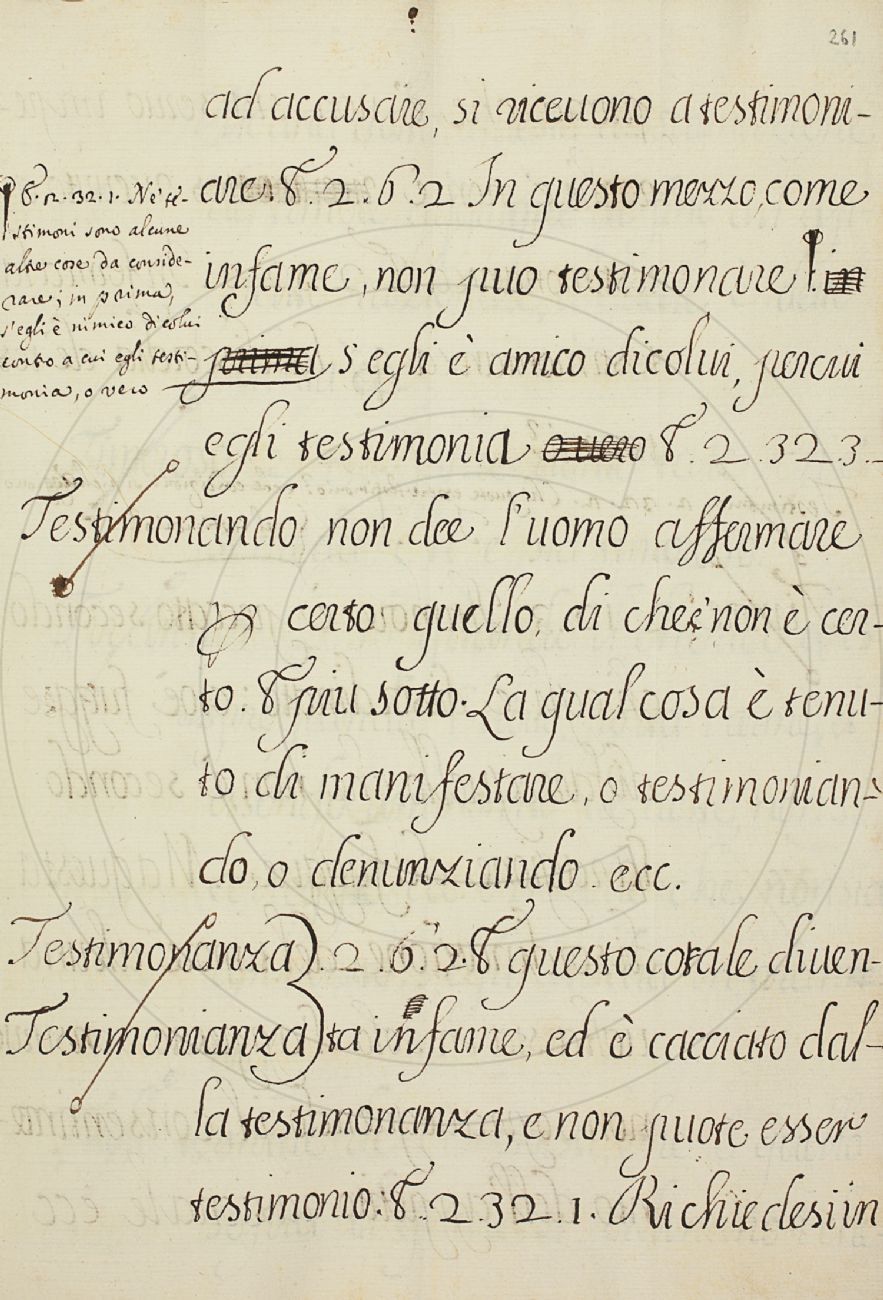 261
ad accusare, si riceuono a testimoni-
are. &. 2. 6. 2 In questo mezzo, come
infame, non puo testimonare !. in
prima s'egli è amico di colui, per cui
egli testimonia o uero &. 2. 32 3.
&. 2. 32. 1. Ne' te-
stimoni sono alcune
altre cose da conside-
rare; in prima,
s'egli è nimico di colui
contro a cui egli testi-
monia, o vero
Testimonando non dee l'uomo affermare
certo quello, di che e' non è cer-
to. & piu sotto. La qual cosa è tenu-
to di manifestare, o testimonian-
do, o denunziando ecc.
Testimonanza). 2. 6. 2. & questo cotale diuen-
Testimonianza) ta infame, ed è cacciato dal-
la testimonanza, e non puote esser
testimonio: &. 2. 32. 1. Richiedesi in